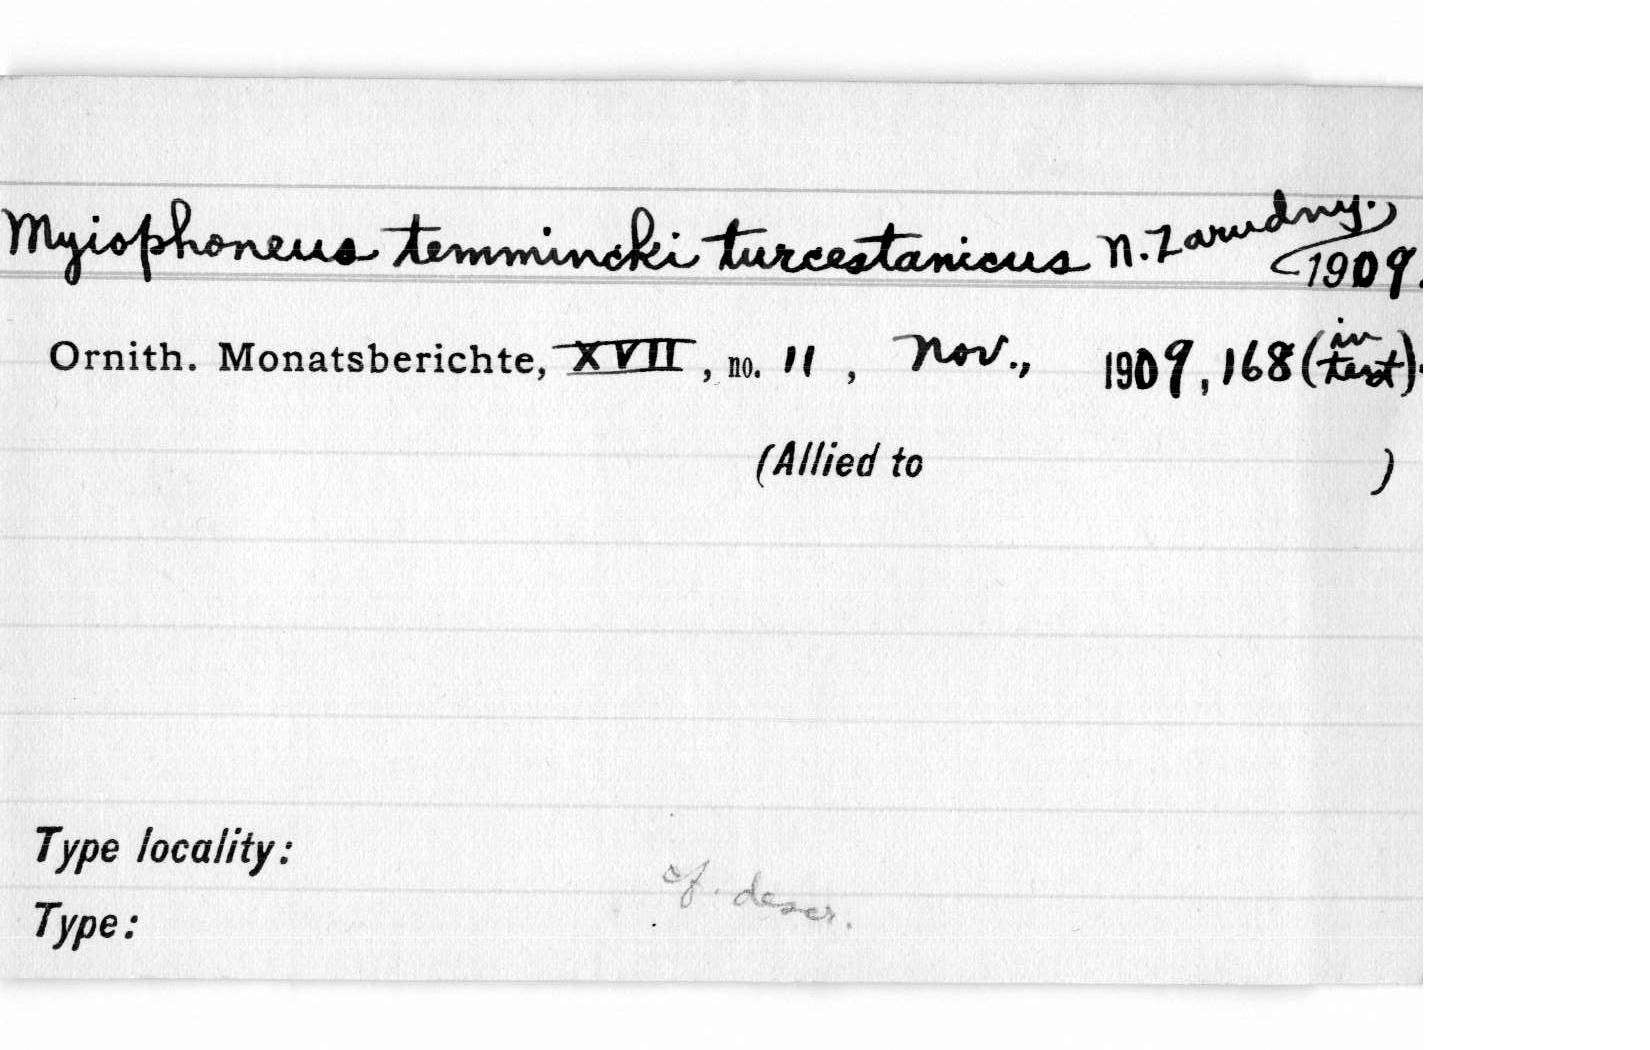 Myiophoneus temmincki turcestanicus N. Zarudny.
1909.
Ornith. Monatsberichte, XVII, no. 11, Nov., 1909, 168 (in text).
(Allied to )
Type locality:
cf. descr.
Type: